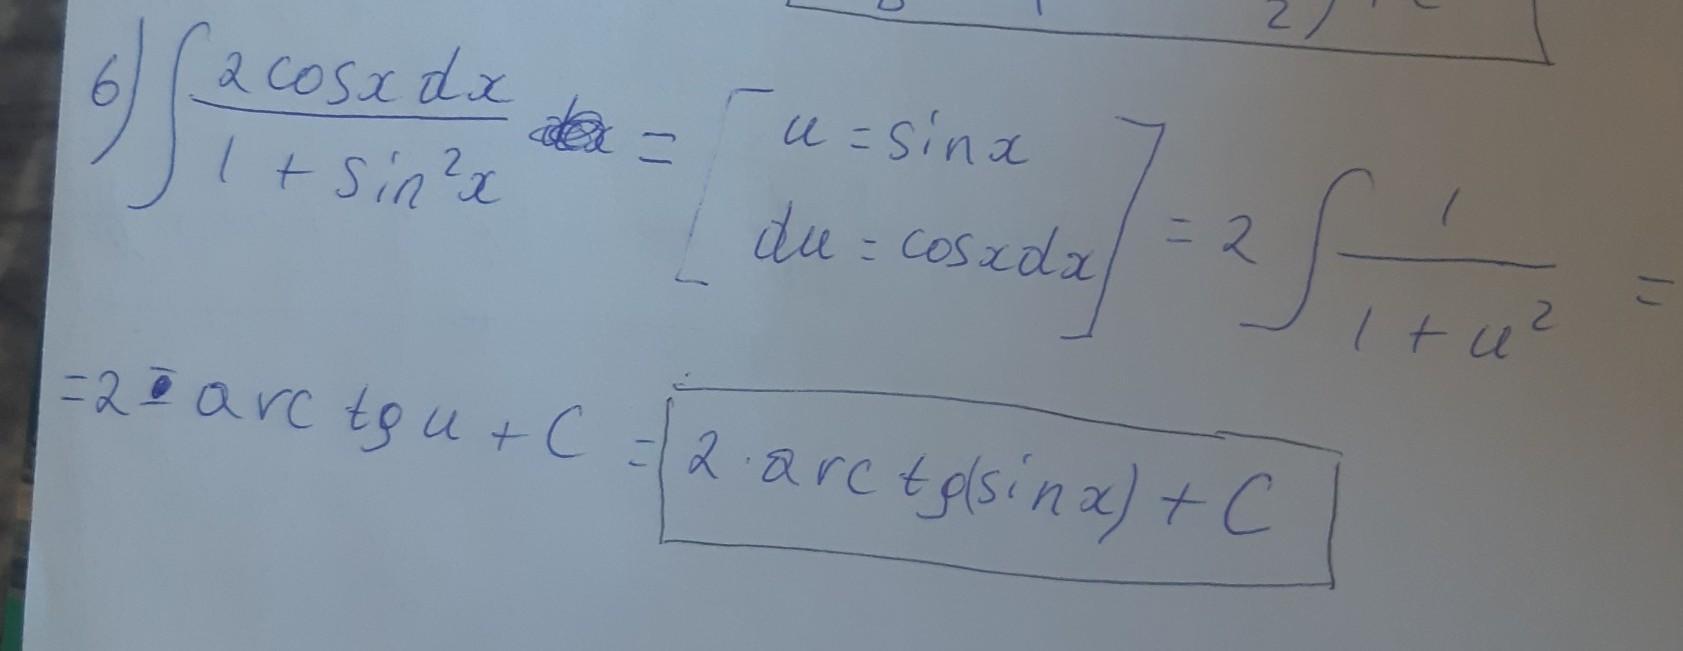 2)
6) ∫ 2cosx dx / 1 + sin²x = [ u = sinx du = cosxdx ] = 2 ∫ 1 / 1 + u² =
= 2 · arc tg u + C = 2 · arc tg(sinx) + C